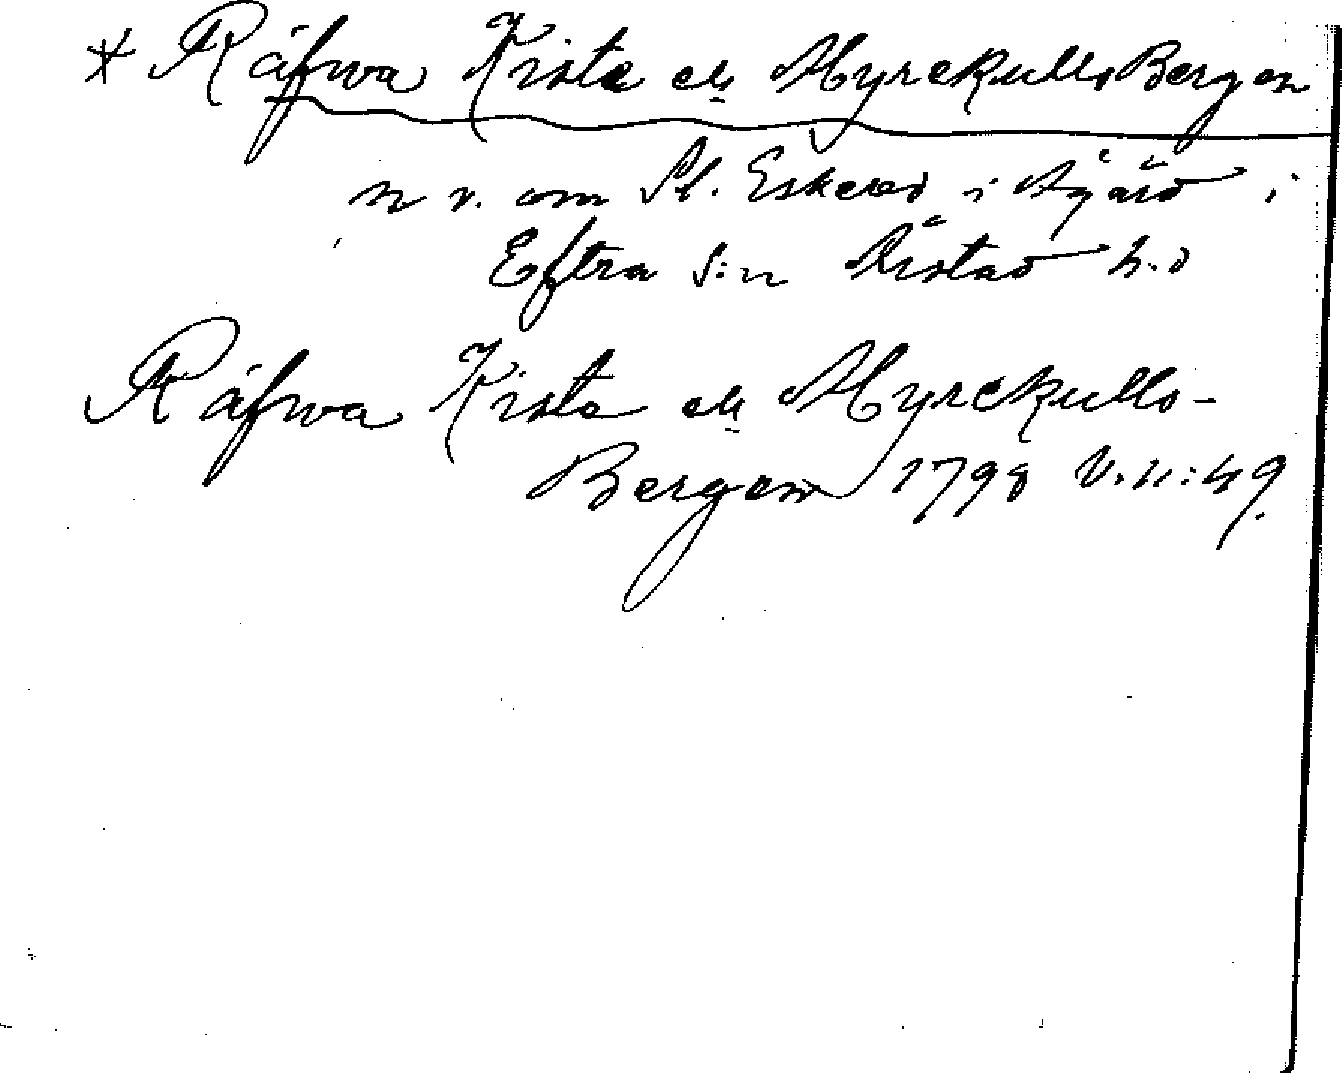 * Räfwa Kista elr MyrekullsBergen
n v. om St. Eskerød i Ågård i
Eftra s:n Årstad h.d
Räfwa Kista elr Myrekulls-
Bergen 1798 V. n: 49.